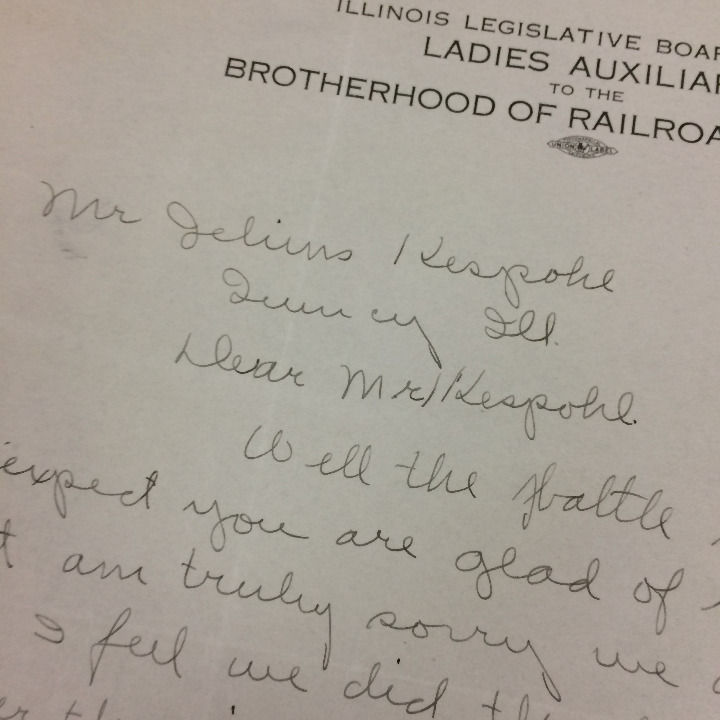 ILLINOIS LEGISLATIVE BOAR
LADIES AUXILIAR
TO THE
BROTHERHOOD OF RAILROA
UNION LABEL
Mr Julius Kespohl
Quincy Ill.
Dear Mr Kespohl.
Well the battle
expect you are glad of
t am truly sorry we
I feel we did th